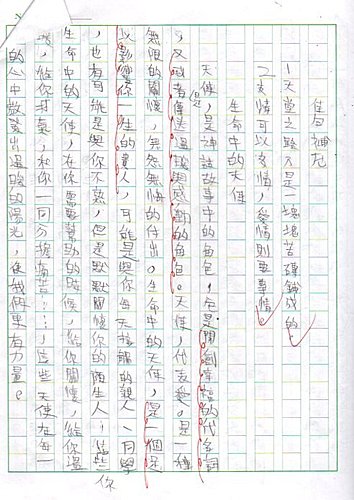 佳句補充
1天堂之路不是一塊塊苦磚鋪成的
情可以友情,愛情則要專情
生命中的天使
天使,是神話故事中的角色,也是開創幸福的代名詞
,又或者是傳送溫暖與感動的角色。天使,代表愛,是一種
無限的關懷,無怨無悔的付出。生命中的天使,是一個足
以影響你一生的貴人,可能是與你每天接觸的親人、同學
,也有可能是與你不熟,但是默默關懷你的陌生人;這些你
生命中的天使,在你需要幫助的時候,給你關懷,給你溫
暖,給你打氣,和你一同分擔痛苦……,這些天使在每一
的心中散發出溫暖的陽光,使我們更有力量。